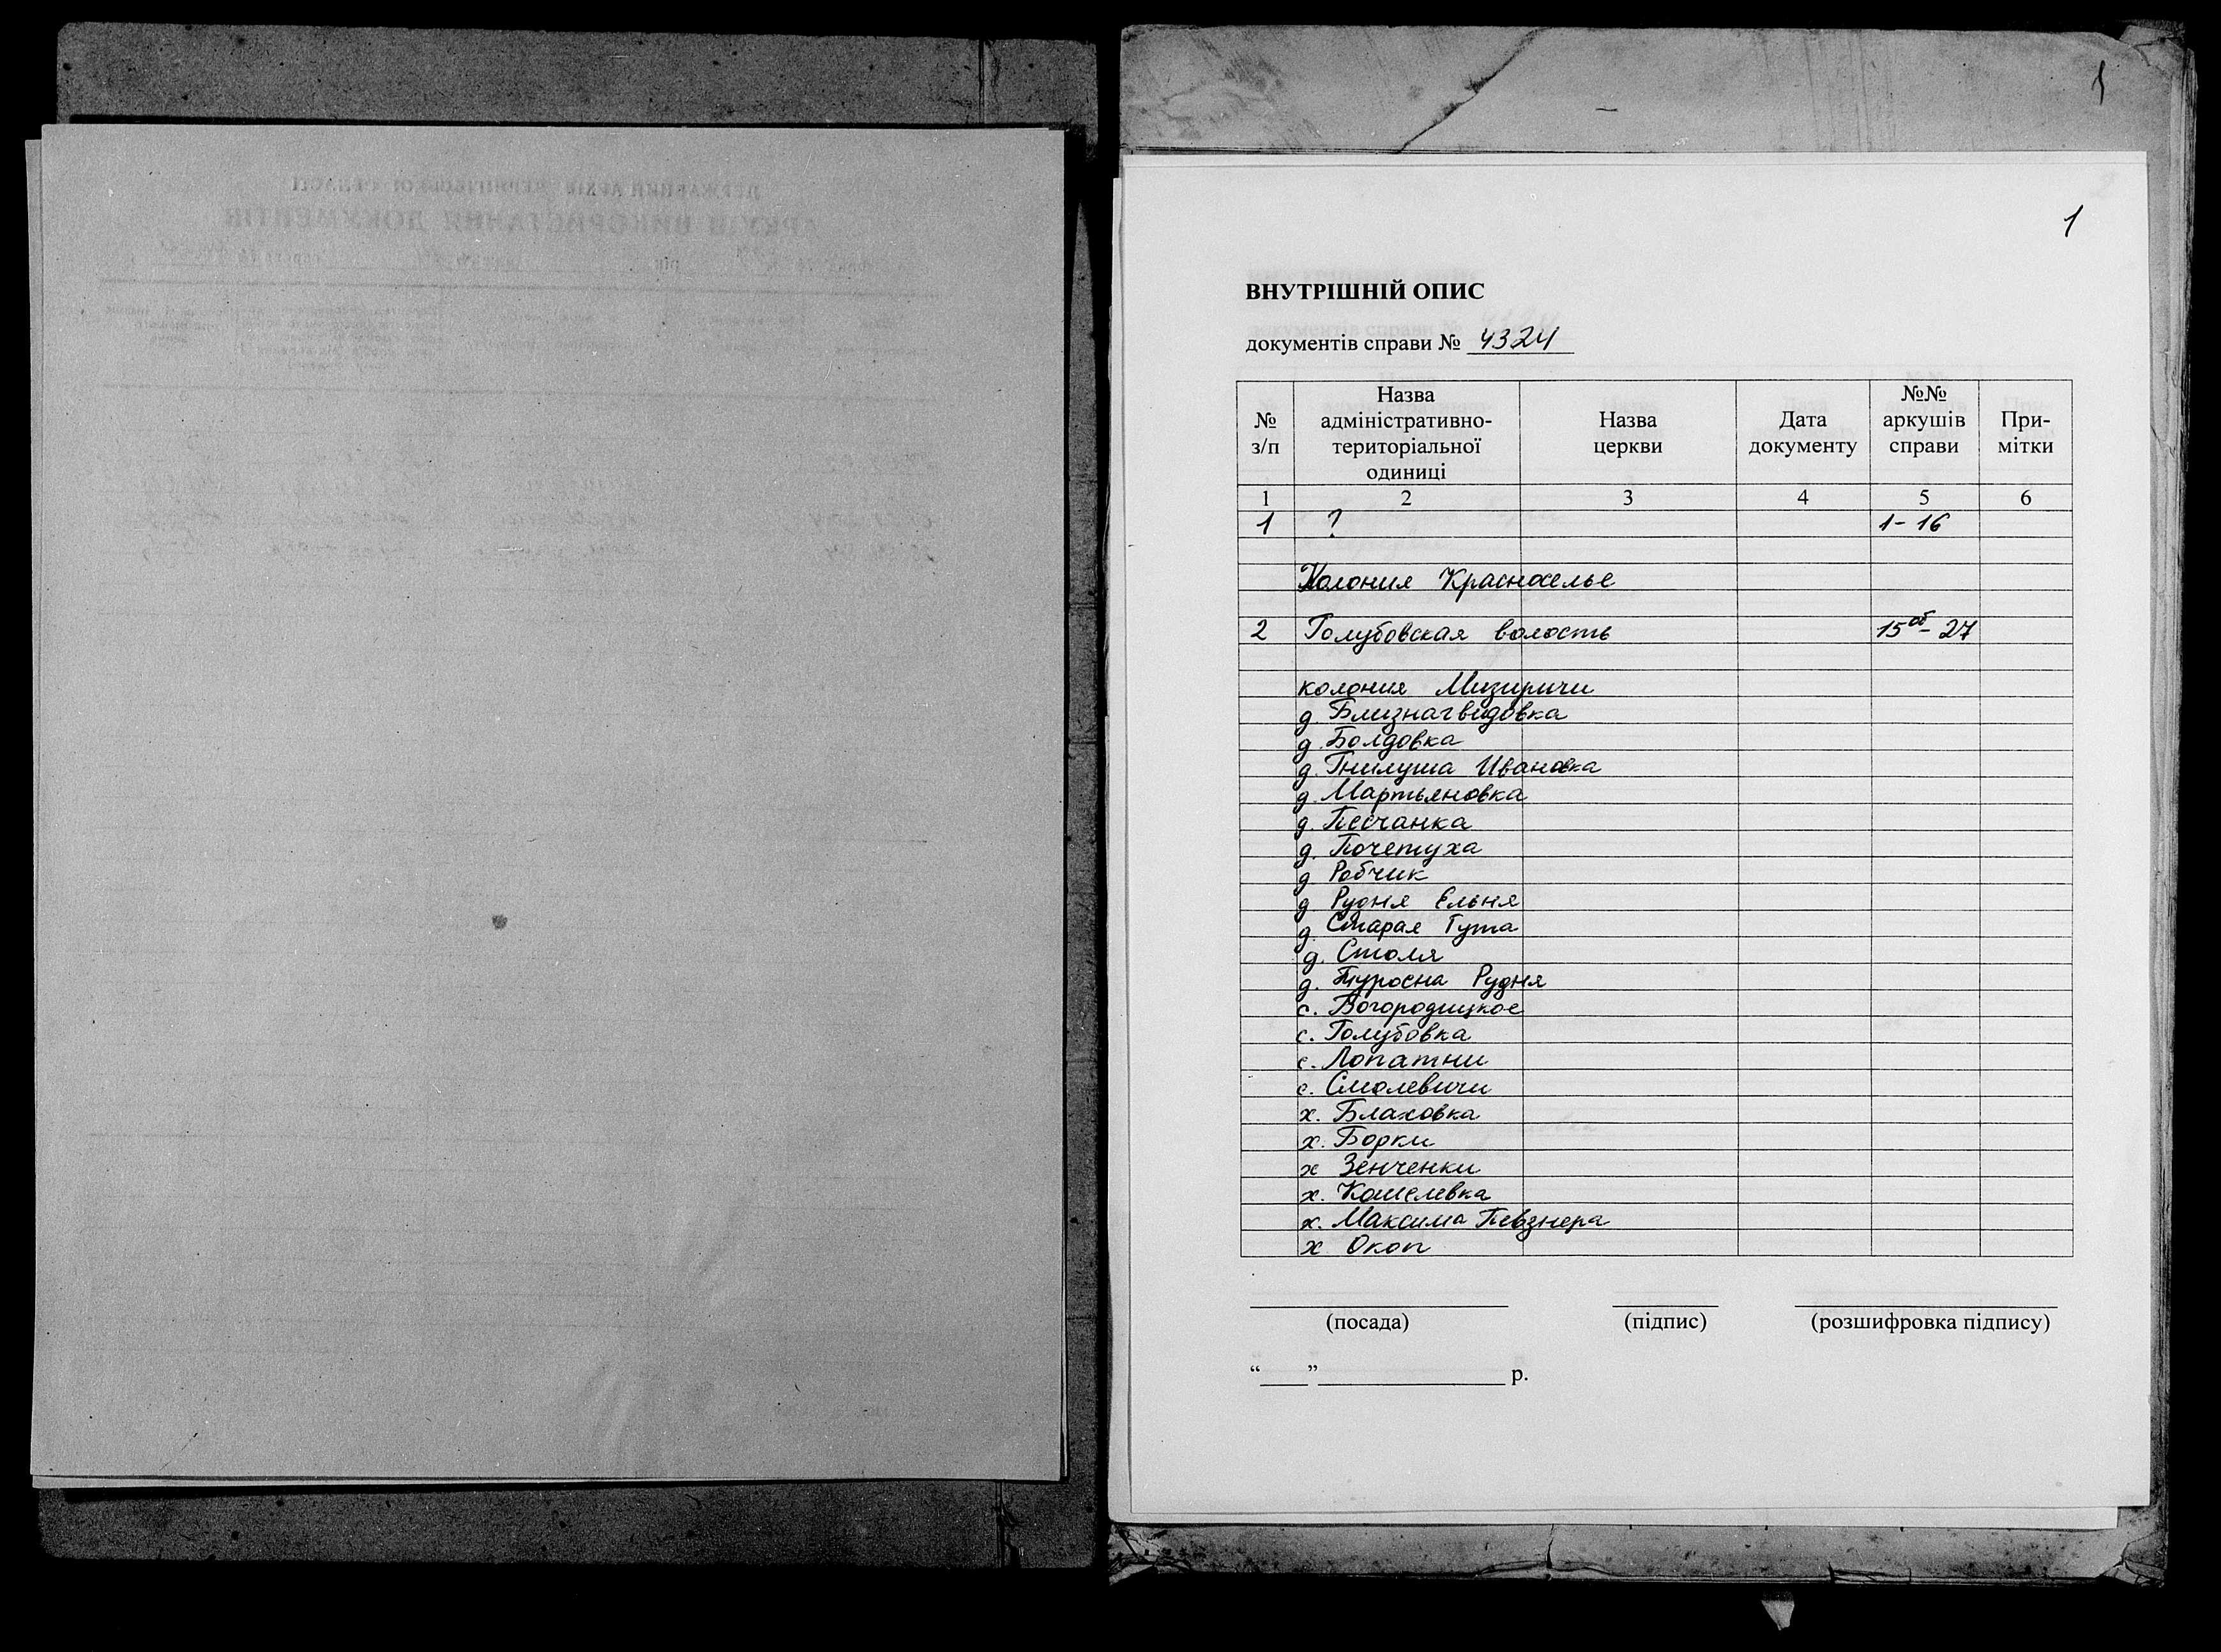 1
1
ВНУТРІШНІЙ ОПИС
документів справи № 4324
№ з/п | Назва адміністративно-територіальної одиниці | Назва церкви | Дата документу | №№ аркушів справи | При-мітки
1 2 3 4 5 6
1 ? 1-16
Колония Красноселье
2 Голубовская волость 15об-27
колония Мизиричи
д. Близнагвидовка
д. Болдовка
д. Гнилуша Ивановка
д. Мартьяновка
д. Песчанка
д. Почетуха
д Робчик
д Рудня Ельня
д. Старая Гута
д. Столя
д. Туросна Рудня
с. Богородицкое
с. Голубовка
с. Лопатни
с. Смолевичи
х. Блаховка
х. Борки
х Зенченки
х. Кошелевка
х. Максима Певзнера
х Окоп
(посада) (підпис) (розшифровка підпису)
“____”________________ р.